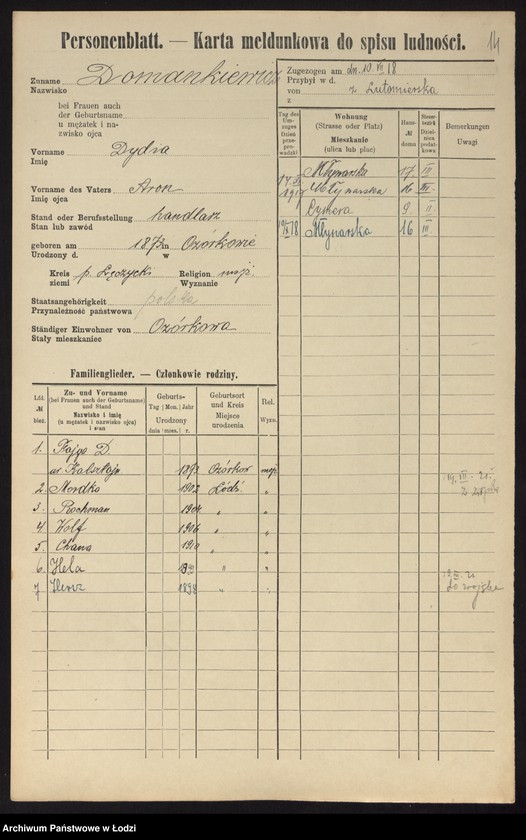 14
Personenblatt. — Karta meldunkowa do spisu ludności.
Zuname Domankiewicz
Nazwisko
bei Frauen auch
der Geburtsname
u mężatek i na-
zwisko ojca
Vorname Dydia
Imię
Vorname des Vaters Aron
Imię ojca
Stand oder Berufsstellung handlarz
Stan lub zawód
geboren am 1873 in Ozórkowie
Urodzony d. w
Kreis p. Łęczycki Religion mojż.
ziemi Wyznanie
Staatsangehörigkeit polska
Przynależność państwowa
Ständiger Einwohner von Ozórkowa
Stały mieszkaniec
Zugezogen am dn. 10. VII 18
Przybył w d.
von z. Lutomierska
z
Tag des Um-zuges Dzień prze-prowadzki
Wohnung (Strasse oder Platz) Mieszkanie (ulica lub plac)
Haus- № domu
Bemerkungen Uwagi
Młynarska 17 III
1917 Młynarska 16 III.
Cymera 9 II
18 Młynarska 16 III.
Familienglieder. — Członkowie rodziny.
Lfd. № bież.
Zu- und Vorname (bei Frauen auch der Geburtsname) und Stand Nazwisko i imię (u mężatek i nazwisko ojca) i stan
Geburts- Tag Mon. Jahr Urodzony dnia mies. r.
Geburtsort und Kreis Miejsce urodzenia
Rel. Wyzn.
1. Fajga D.
ur. 1873 Ozórków mojż.
2. Mordka 1902 Łódź "
3. Rochman 1904 " "
4. Wolf 1906 " "
5. Chana 1911 " "
6. Hela " "
7 Hersz 1898 " "
do wojska
Archiwum Państwowe w Łodzi